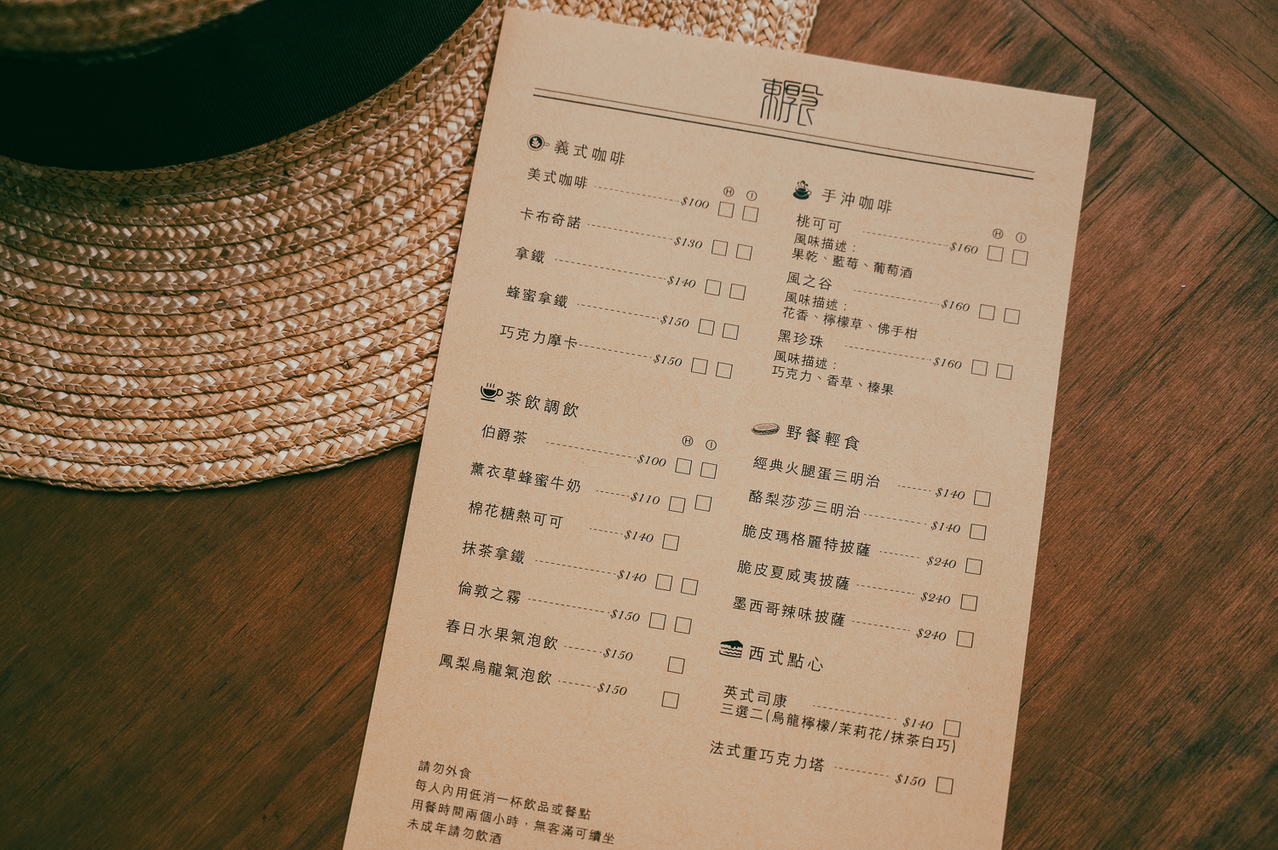 義式咖啡
Ⓗ Ⓘ
美式咖啡 $100
卡布奇諾 $130
拿鐵 $140
蜂蜜拿鐵 $150
巧克力摩卡 $150
茶飲調飲
Ⓗ Ⓘ
伯爵茶 $100
薰衣草蜂蜜牛奶 $110
棉花糖熱可可 $140
抹茶拿鐵 $140
倫敦之霧 $150
春日水果氣泡飲 $150
鳳梨烏龍氣泡飲 $150
請勿外食
每人內用低消一杯飲品或餐點
用餐時間兩個小時，無客滿可續坐
未成年請勿飲酒
手沖咖啡
Ⓗ Ⓘ
桃可可 $160
風味描述：
果乾、藍莓、葡萄酒
風之谷 $160
風味描述：
花香、檸檬草、佛手柑
黑珍珠 $160
風味描述：
巧克力、香草、榛果
野餐輕食
經典火腿蛋三明治 $140
酪梨莎莎三明治 $140
脆皮瑪格麗特披薩 $240
脆皮夏威夷披薩 $240
墨西哥辣味披薩 $240
西式點心
英式司康 $140
三選二(烏龍檸檬/茉莉花/抹茶白巧)
法式重巧克力塔 $150